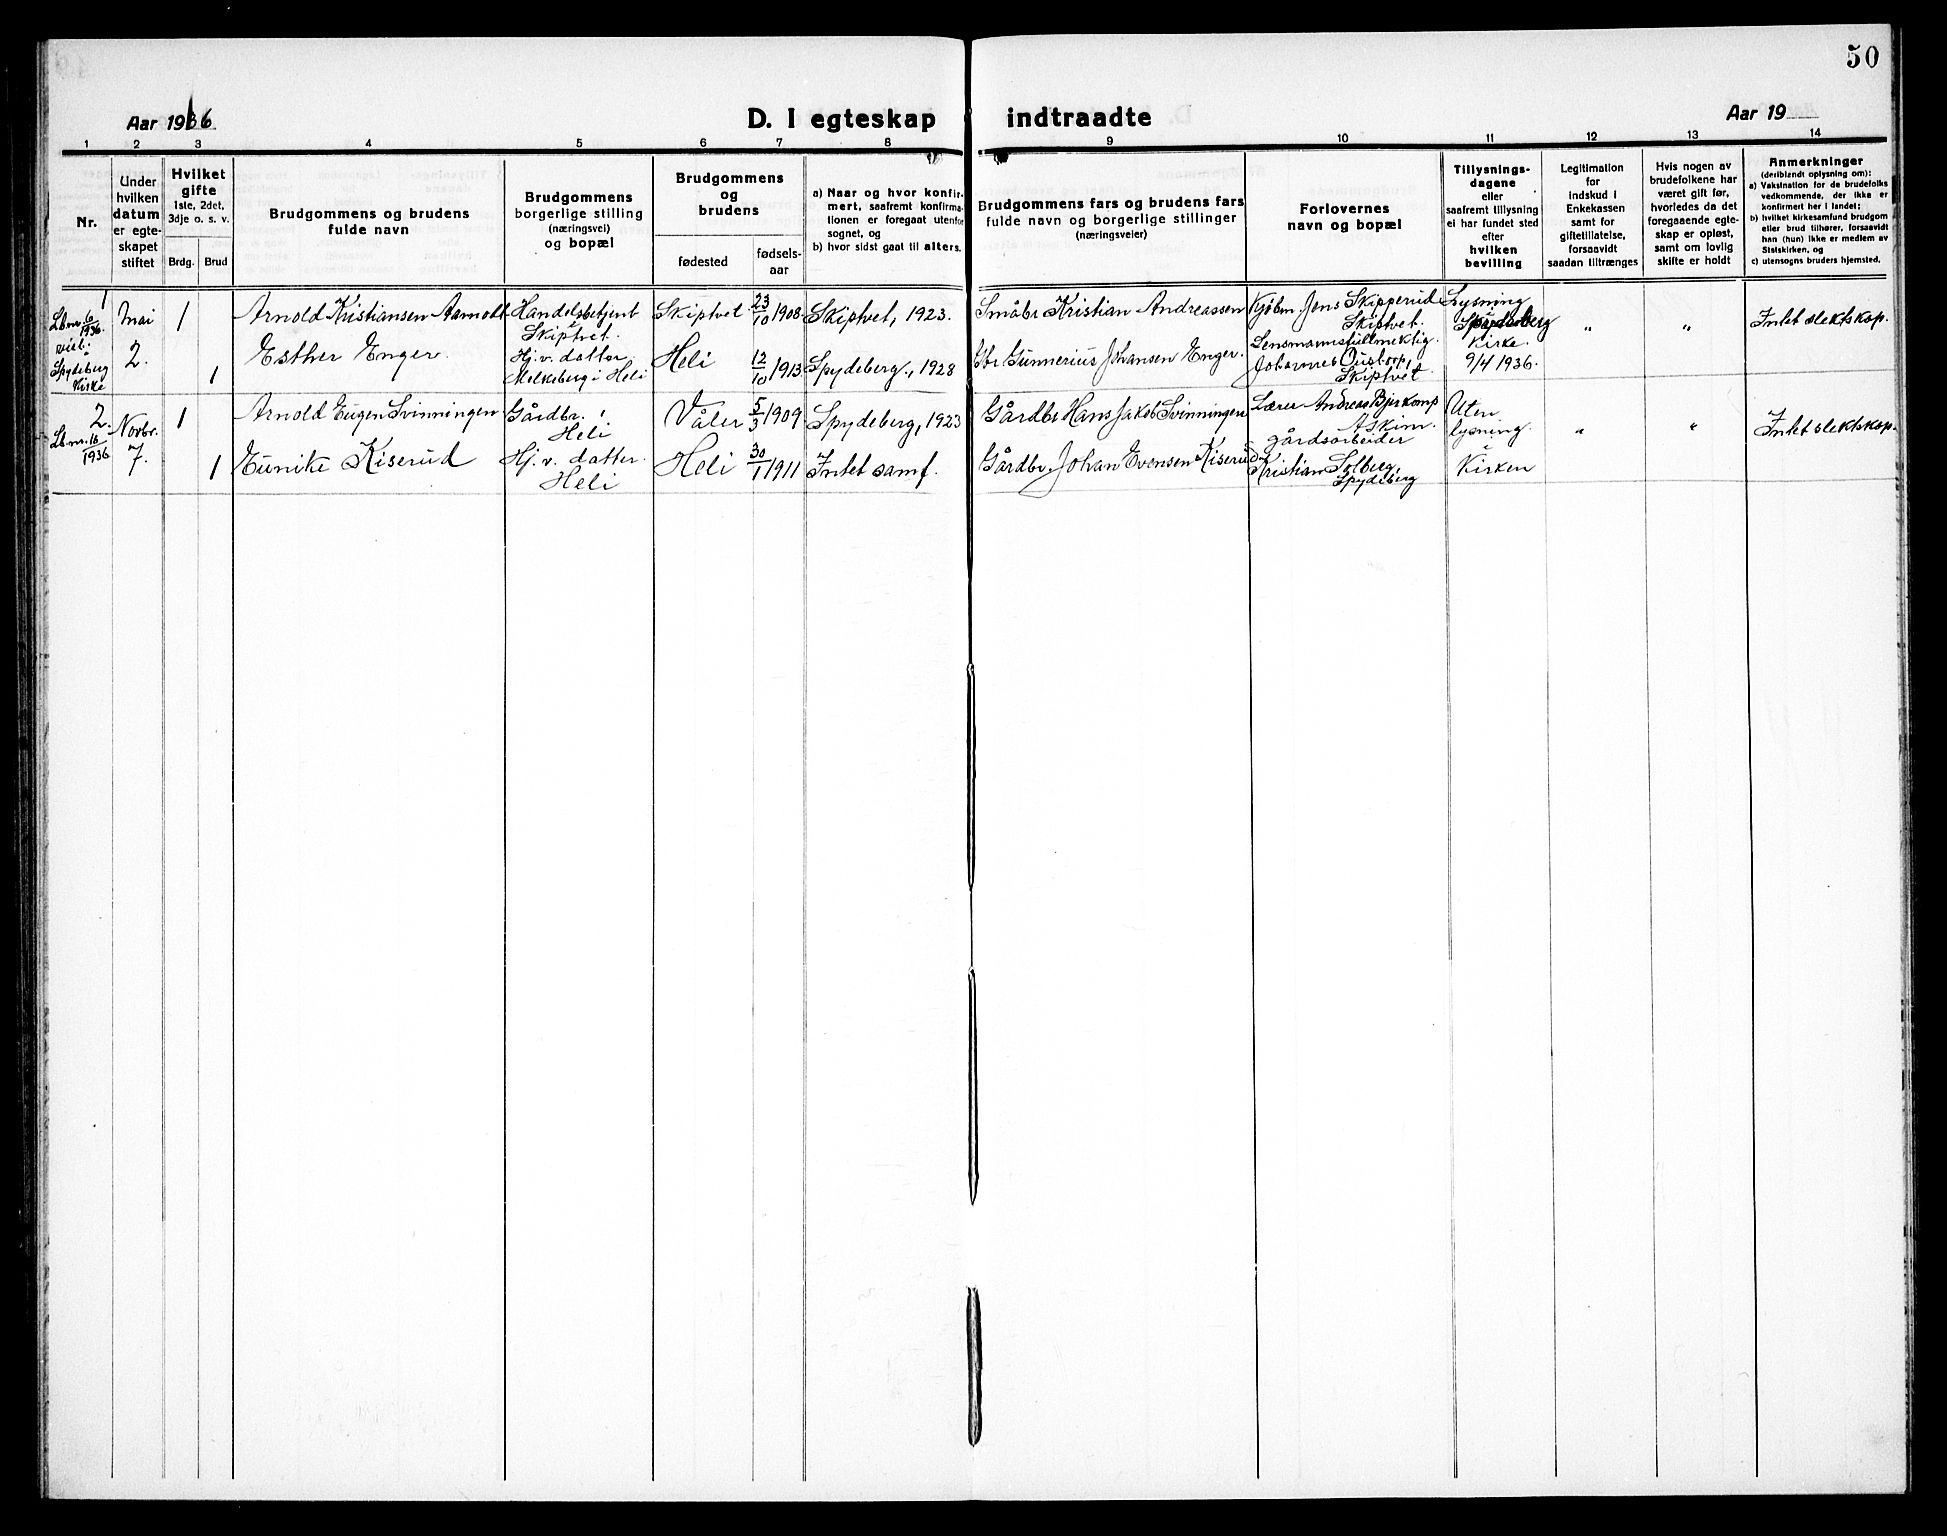 50
Aar 1936
D. I egteskap indtraadte
Aar 19
1 2 3 4 5 6 7 8 9 10 11 12 13 14
Nr.
Under
hvilken
datum
er egte-
skapet
stiftet
Hvilket
gifte
1ste, 2det,
3dje o. s. v.
Brdg. Brud
Brudgommens og brudens
fulde navn
Brudgommens
borgerlige stilling
(næringsvei)
og bopæl
Brudgommens
og
brudens
fødested
fødsels-
aar
a) Naar og hvor konfir-
mert, saafremt konfirma-
tionen er foregaat utenfor
sognet, og
b) hvor sidst gaat til alters.
Brudgommens fars og brudens fars
fulde navn og borgerlige stillinger
(næringsveier)
Forlovernes
navn og bopæl
Tillysnings-
dagene
eller
saafremt tillysning
ei har fundet sted
efter
hvilken
bevilling
Legitimation
for
indskud i
Enkekassen
samt for
giftetillatelse,
forsaavidt
saadan tiltrænges
Hvis nogen av
brudefolkene har
været gift før,
hvorledes da det
foregaaende egte-
skap er opløst,
samt om lovlig
skifte er holdt
Anmerkninger
(deriblandt oplysning om):
a) Vaksination for de brudefolks
vedkommende, der ikke er
konfirmert her i landet;
b) hvilket kirkesamfund brudgom
eller brud tilhører, forsaavidt
han (hun) ikke er medlem av
Statskirken, og
c) utensogns bruders hjemsted.
1
Lb.nr. 6/1936.
vist i
Spydeberg
Kirke
Mai
2.
1
Arnold Kristiansen Aamodt
Handelsbetjent
Skiptvet.
Skiptvet
23/10 1908
Skiptvet, 1923.
Småbr. Kristian Andreassen
Kjøbm. Jens Skipperud
Skiptvet.
Lysning
i
Spydeberg
Kirke.
9/4 1936.
"
"
Intet slektskap.
1
Esther Enger.
Hj. v. datter.
Melkeberg i Heli
Heli
12/10 1913
Spydeberg., 1928
Gbr. Gunnerius Johansen Enger.
Lensmannsfullmektig.
Johannes
Skiptvet
2.
Lb.nr. 16/1936
Novbr.
7.
1
Arnold Eugen Svinningen
Gårdbr. i
Heli
Våler
5/3 1909
Spydeberg, 1923
Gårdbr. Hans Jakob Svinningen
Lærer Andreas
Askim.
Uten
lysning.
i
Kirken
"
"
Intet slektskap.
1
Eunike Kiserud
Hj. v. datter.
Heli
Heli
30/1 1911
Intet samf.
Gårdbr. Johan Evensen Kiserud
gårdsarbeider
Kristian Solberg,
Spydeberg